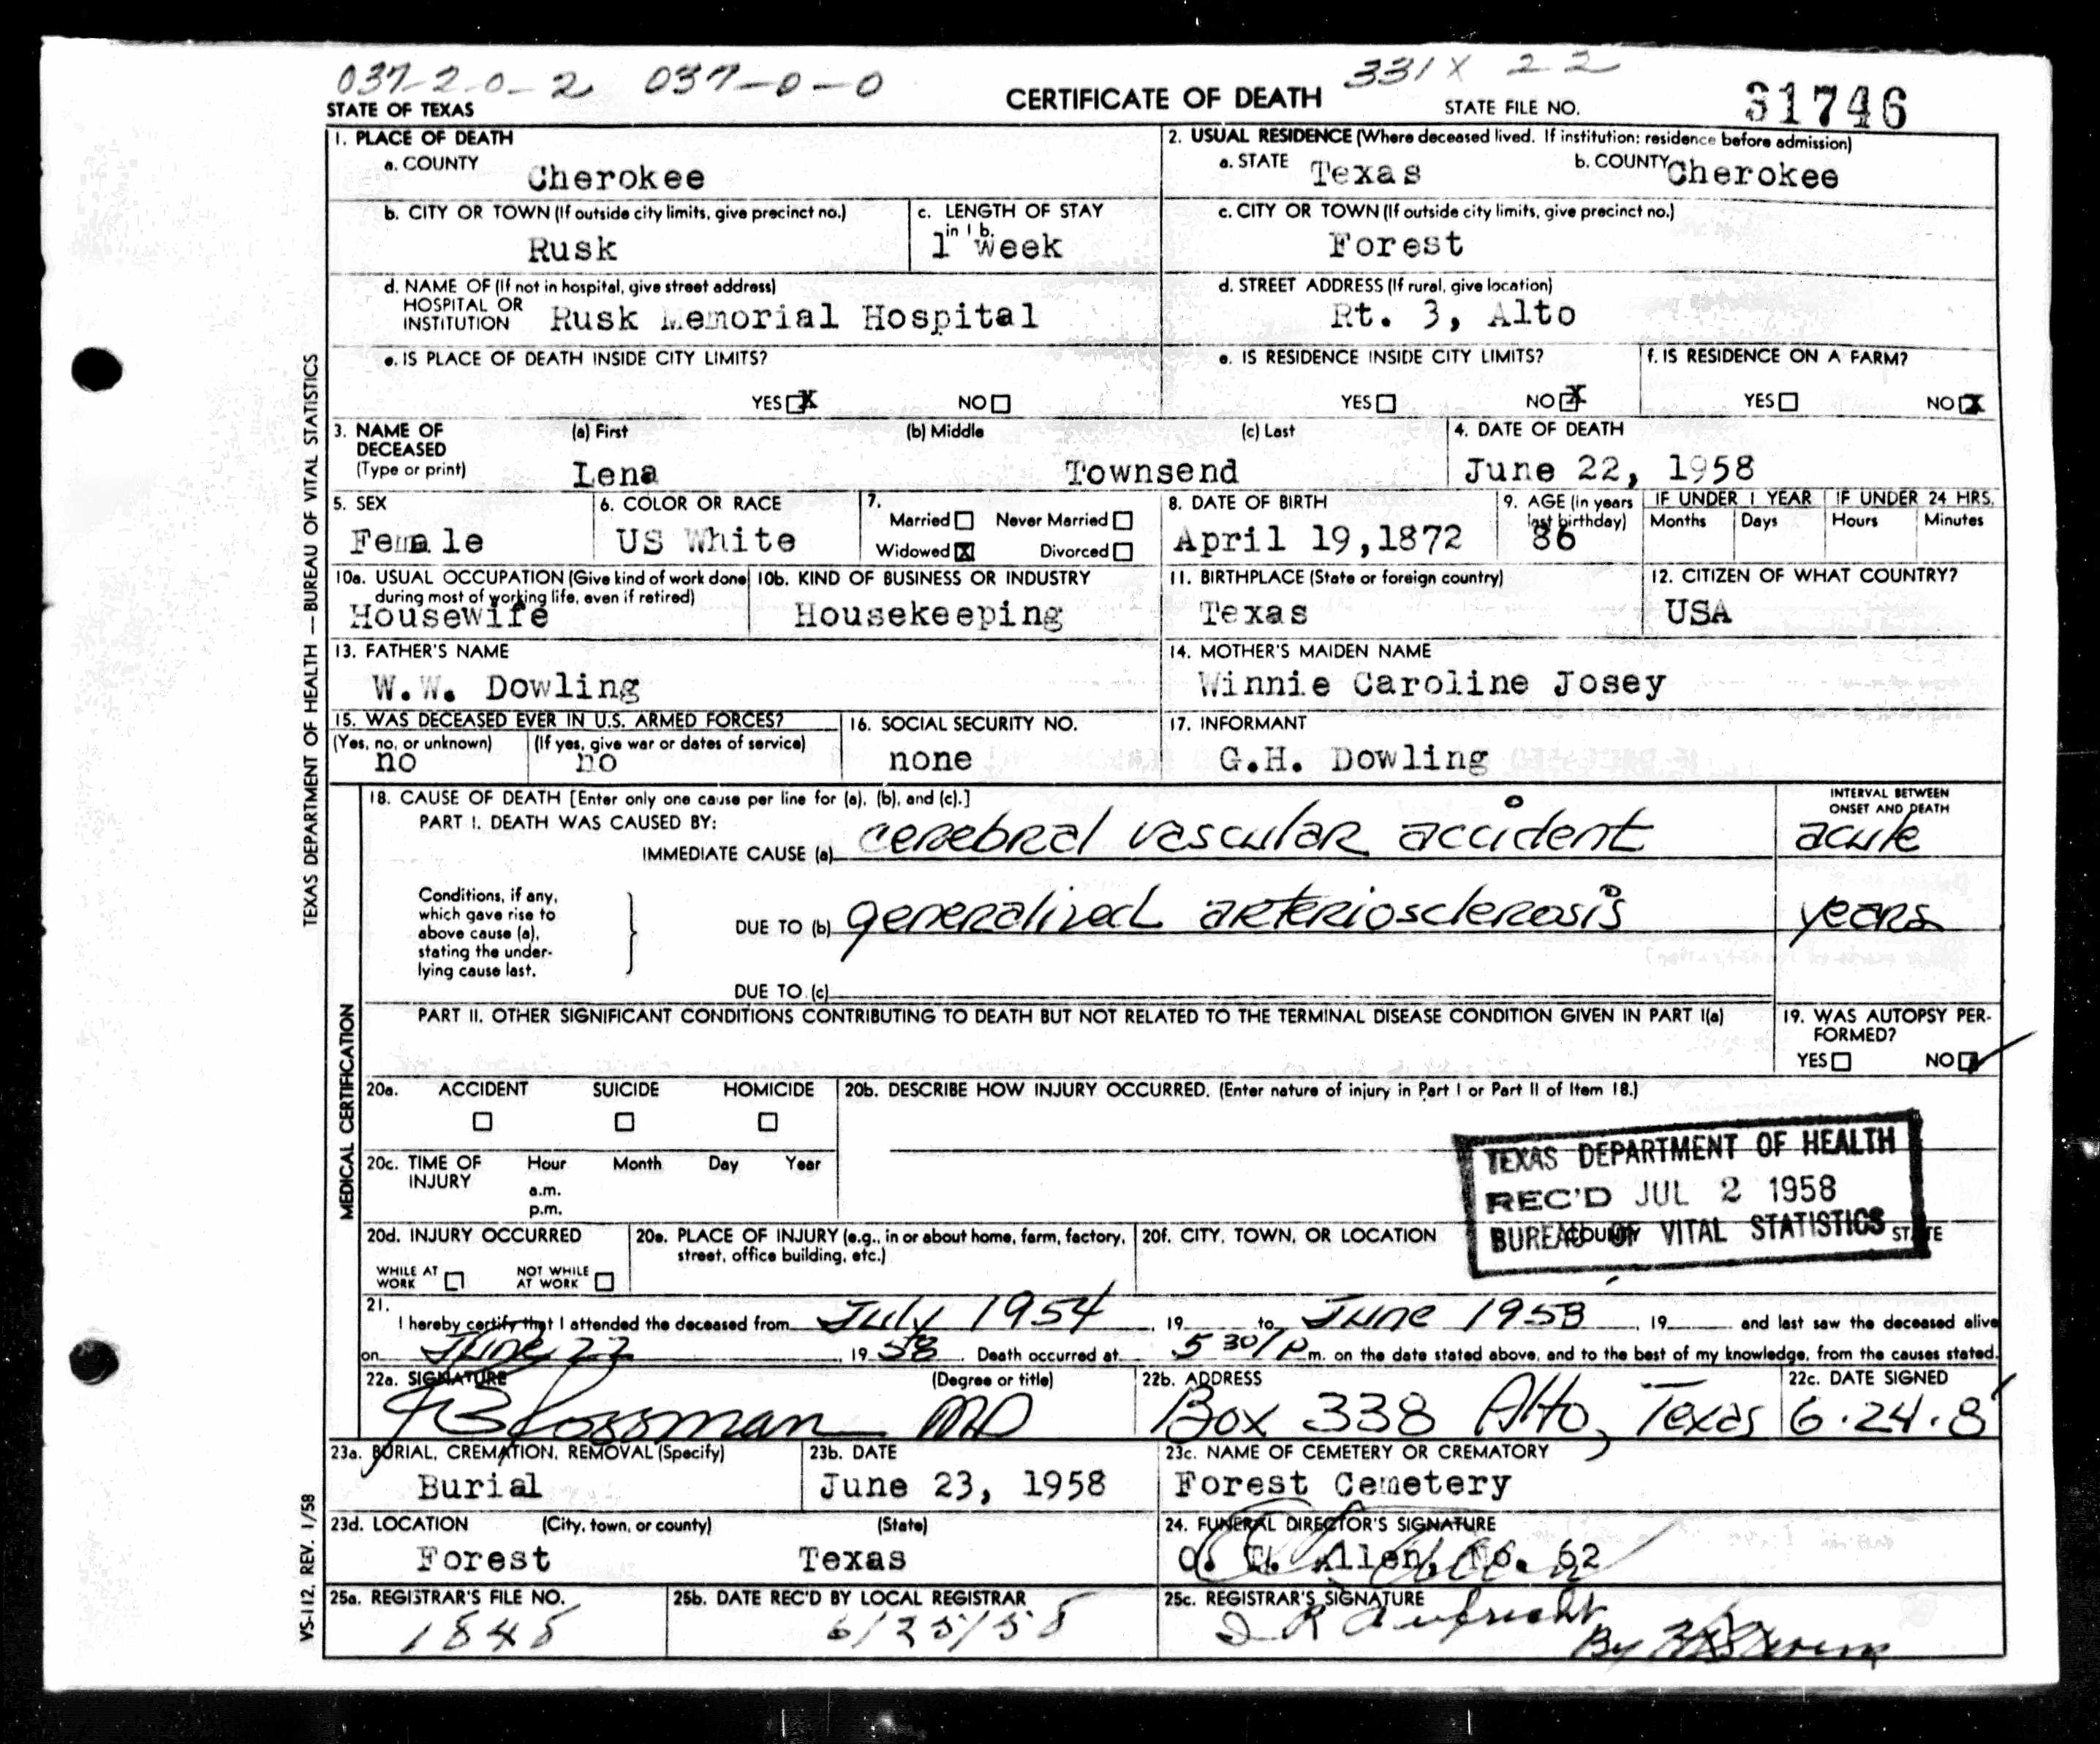 037-2-0-2 037-0-0 331X 22
STATE OF TEXAS CERTIFICATE OF DEATH STATE FILE NO. 31746
1. PLACE OF DEATH
a. COUNTY Cherokee
2. USUAL RESIDENCE (Where deceased lived. If institution: residence before admission)
a. STATE Texas b. COUNTY Cherokee
b. CITY OR TOWN (If outside city limits, give precinct no.) Rusk
c. LENGTH OF STAY in 1 b. 1 week
c. CITY OR TOWN (If outside city limits, give precinct no.) Forest
d. NAME OF (If not in hospital, give street address)
HOSPITAL OR
INSTITUTION Rusk Memorial Hospital
d. STREET ADDRESS (If rural, give location)
Rt. 3, Alto
e. IS PLACE OF DEATH INSIDE CITY LIMITS?
YES X NO
e. IS RESIDENCE INSIDE CITY LIMITS?
YES NO X
f. IS RESIDENCE ON A FARM?
YES NO X
3. NAME OF DECEASED (Type or print)
(a) First (b) Middle (c) Last
Lena Townsend
4. DATE OF DEATH
June 22, 1958
5. SEX
Female
6. COLOR OR RACE
US White
7.
Married Never Married
Widowed X Divorced
8. DATE OF BIRTH
April 19,1872
9. AGE (in years last birthday)
86
IF UNDER 1 YEAR
Months Days
IF UNDER 24 HRS.
Hours Minutes
10a. USUAL OCCUPATION (Give kind of work done during most of working life, even if retired)
Housewife
10b. KIND OF BUSINESS OR INDUSTRY
Housekeeping
11. BIRTHPLACE (State or foreign country)
Texas
12. CITIZEN OF WHAT COUNTRY?
USA
13. FATHER'S NAME
W.W. Dowling
14. MOTHER'S MAIDEN NAME
Winnie Caroline Josey
15. WAS DECEASED EVER IN U.S. ARMED FORCES?
(Yes, no, or unknown) (If yes, give war or dates of service)
no no
16. SOCIAL SECURITY NO.
none
17. INFORMANT
G.H. Dowling
18. CAUSE OF DEATH [Enter only one cause per line for (a), (b), and (c).]
PART I. DEATH WAS CAUSED BY:
IMMEDIATE CAUSE (a) cerebral vascular accident
INTERVAL BETWEEN
ONSET AND DEATH
acute
Conditions, if any,
which gave rise to
above cause (a),
stating the under-
lying cause last.
DUE TO (b) generalized arteriosclerosis years
DUE TO (c)
PART II. OTHER SIGNIFICANT CONDITIONS CONTRIBUTING TO DEATH BUT NOT RELATED TO THE TERMINAL DISEASE CONDITION GIVEN IN PART I(a)
19. WAS AUTOPSY PER-
FORMED?
YES NO
20a. ACCIDENT SUICIDE HOMICIDE
20b. DESCRIBE HOW INJURY OCCURRED. (Enter nature of injury in Part I or Part II of Item 18.)
20c. TIME OF INJURY Hour Month Day Year
a.m.
p.m.
TEXAS DEPARTMENT OF HEALTH
REC'D JUL 2 1958
BUREAU OF VITAL STATISTICS
20d. INJURY OCCURRED
WHILE AT WORK NOT WHILE AT WORK
20e. PLACE OF INJURY (e.g., in or about home, farm, factory,
street, office building, etc.)
20f. CITY, TOWN, OR LOCATION COUNTY STATE
21.
I hereby certify that I attended the deceased from July 1954, 19 to June 1958, 19 and last saw the deceased alive
on June 22, 1958. Death occurred at 5 30/P m. on the date stated above, and to the best of my knowledge, from the causes stated.
22a. SIGNATURE (Degree or title)
MD
22b. ADDRESS
Box 338 Alto, Texas
22c. DATE SIGNED
6.24.8
23a. BURIAL, CREMATION, REMOVAL (Specify)
Burial
23b. DATE
June 23, 1958
23c. NAME OF CEMETERY OR CREMATORY
Forest Cemetery
23d. LOCATION (City, town, or county) (State)
Forest Texas
24. FUNERAL DIRECTOR'S SIGNATURE
Allen, No. 62
25a. REGISTRAR'S FILE NO.
1848
25b. DATE REC'D BY LOCAL REGISTRAR
6/25/58
25c. REGISTRAR'S SIGNATURE
By
TEXAS DEPARTMENT OF HEALTH — BUREAU OF VITAL STATISTICS
MEDICAL CERTIFICATION
VS-112, REV. 1/58